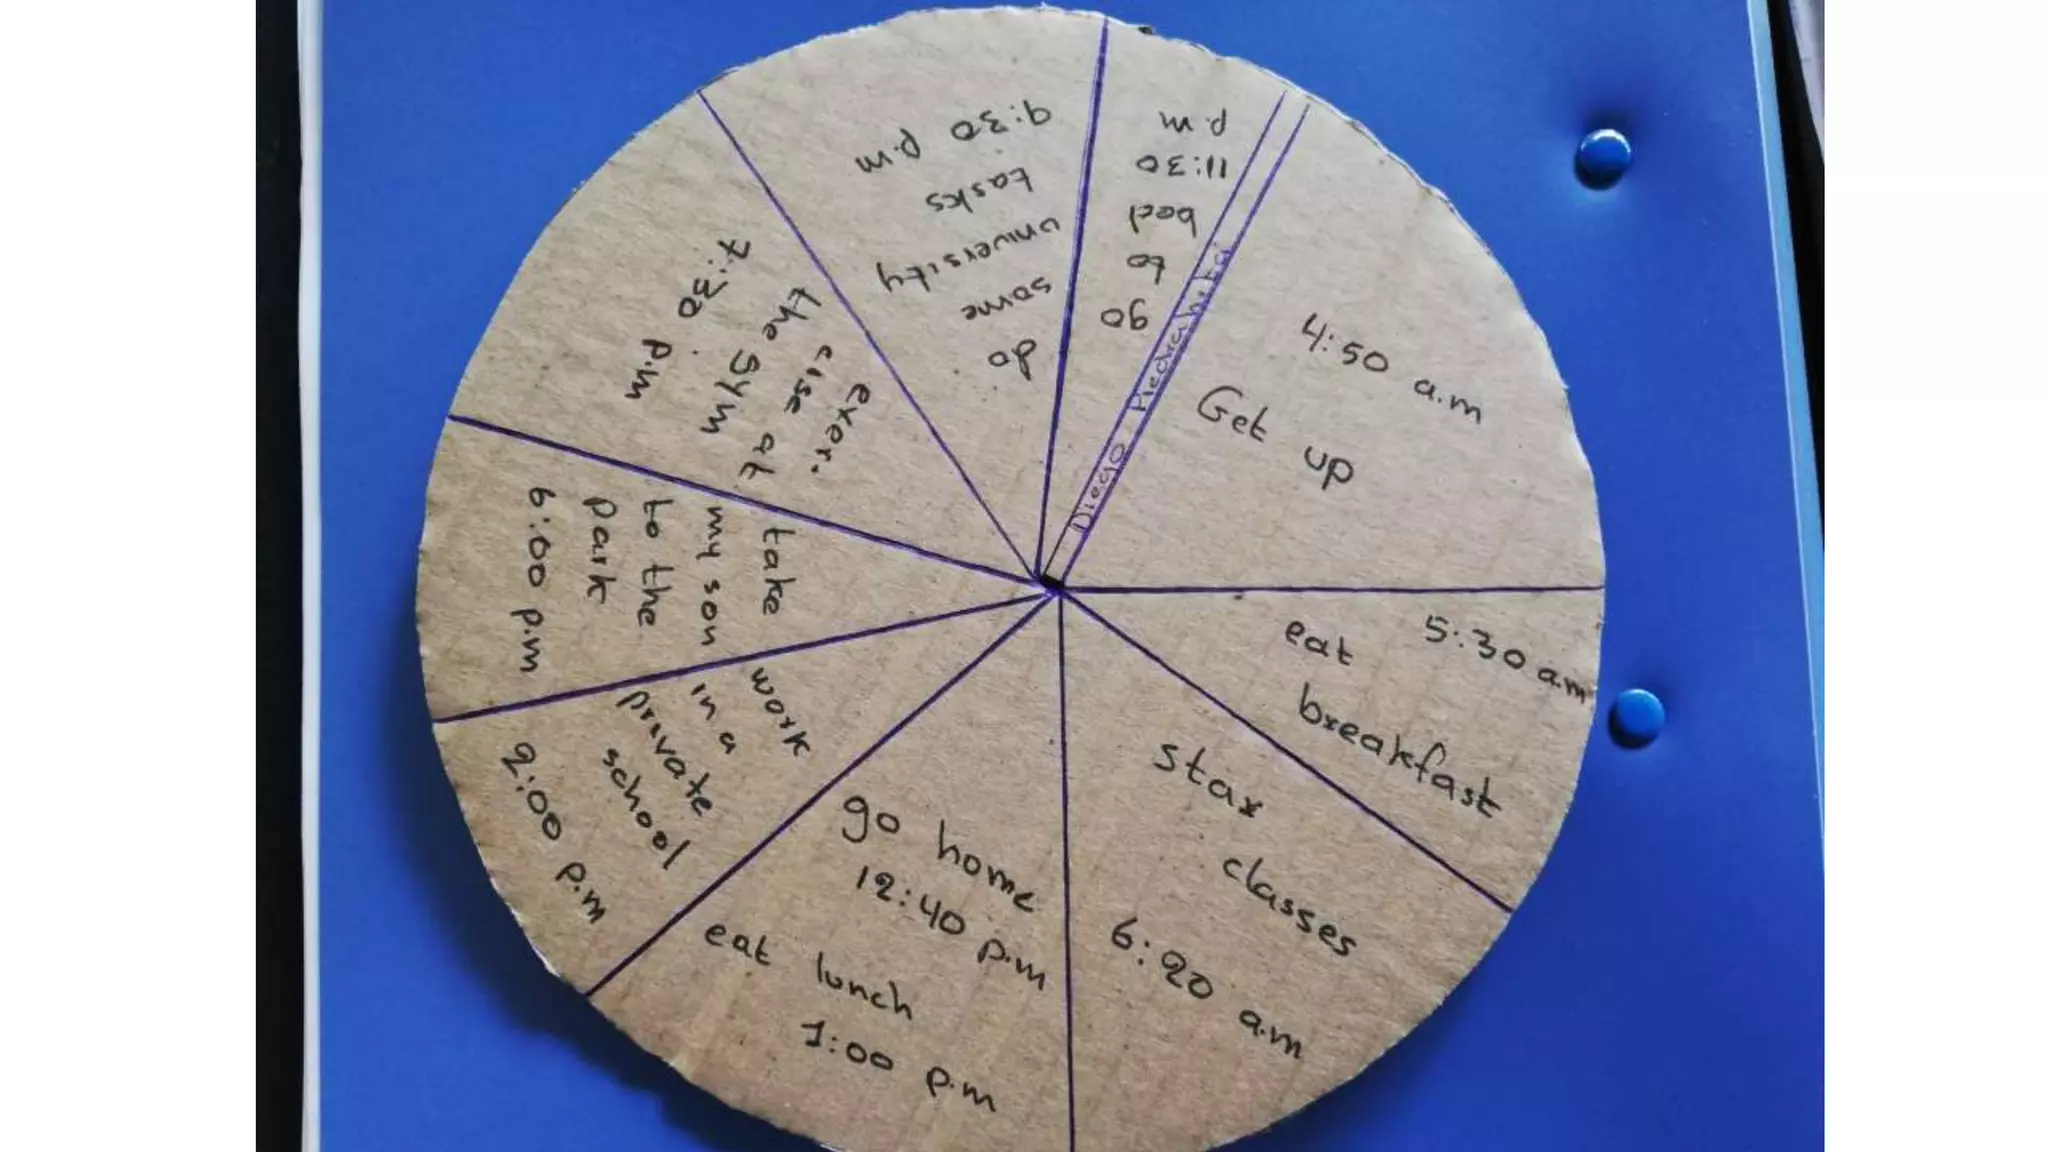 4:50 a.m
Get up
5:30 a.m
eat
breakfast
star
classes
6:20 a.m
go home
12:40 p.m
eat lunch
1:00 p.m
work
in a
private
school
2:00 p.m
take
my son
to the
park
6:00 p.m
exer.
cise at
the gym
7:30 p.m
do
some
university
tasks
9:30 p.m
go
to
bed
11:30
p.m
Diego Piedrahita